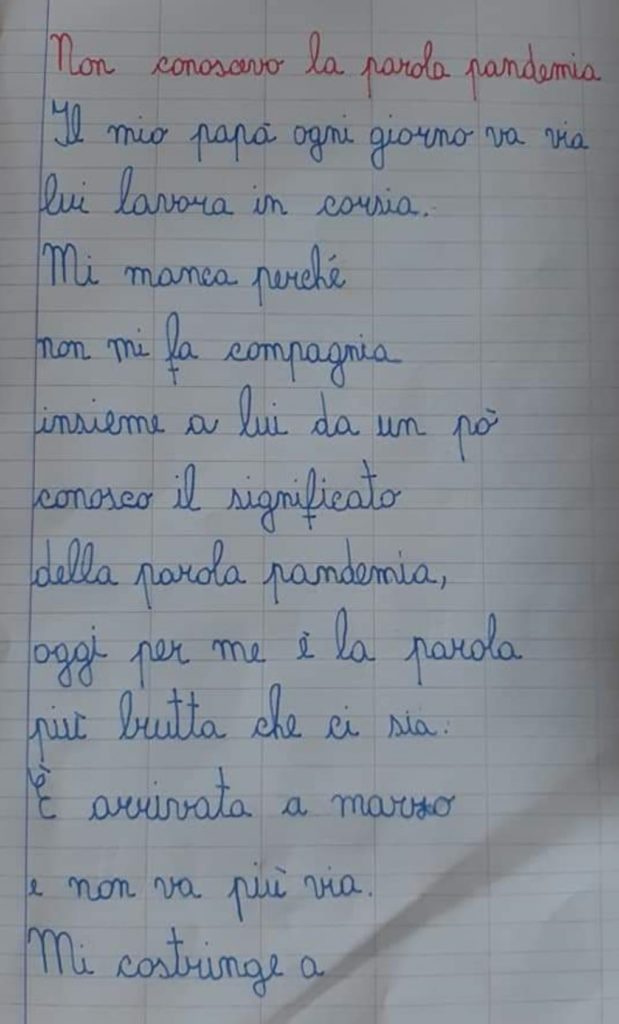 Non conoscevo la parola pandemia
Il mio papà ogni giorno va via
lui lavora in corsia.
Mi manca perché
non mi fa compagnia
insieme a lui da un pò
conosco il significato
della parola pandemia,
oggi per me è la parola
più brutta che ci sia.
È arrivata a marzo
e non va più via.
Mi costringe a